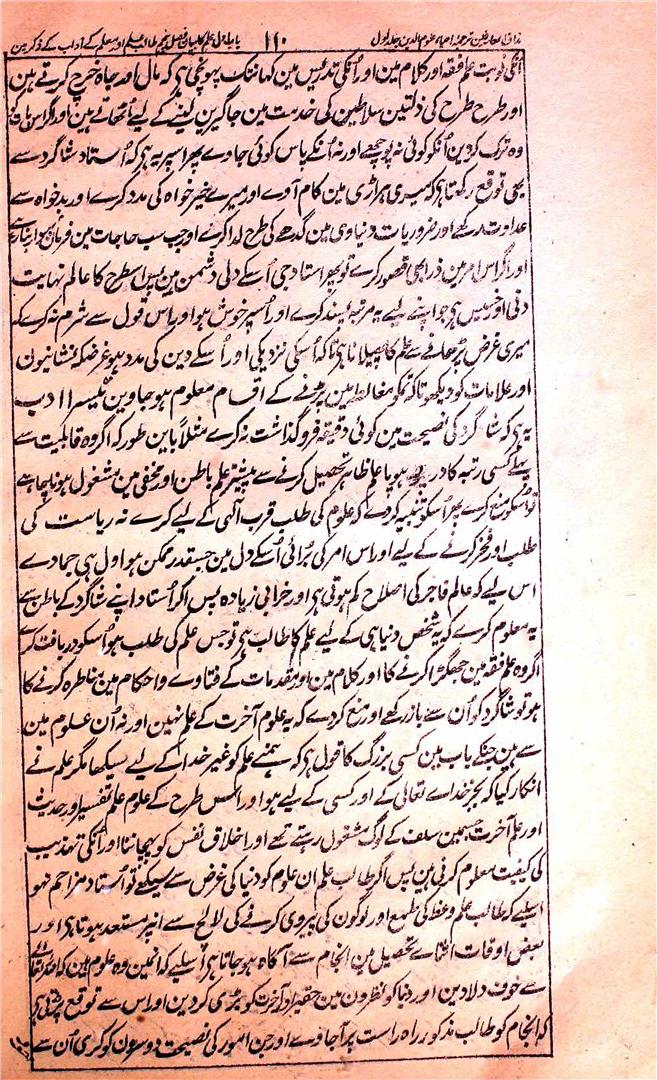 مذاق العارفین ترجمہ احیاء علوم الدین جلد اول ۱۱۰ باب اول علم کا بیان فصل پنجم طالب علم اور معلم کے آداب کے ذکر مین
انکی نوبت علم فقہ اور کلام مین اور اُنکی تدریس مین کہانتک پہونچی ہی کہ مال اور جاہ خرچ کرتے ہین
اور طرح طرح کی ذلتین سلاطین کی خدمت مین جاگیرین لینے کے لیے اُٹھاتے ہین اور اگر اس بات کو
وہ ترک کردین اُنکو کوئی نہ پوچھے اور نہ اُنکے پاس کوئی جاوے پھر اسپر یہ ہی کہ اُستاد شاگرد سے
یہی توقع رکھتا ہی کہ میری ہر اڑی مین کام آوے اور میرے خیر خواہ کی مدد کرے اور بدخواہ سے
عداوت رکھے اور ضروریات دنیاوی مین گدھے کی طرح لدا کرے اور جب سب حاجات مین فرمان بردار بنا رہے
اور اگر اس امر مین ذرا بھی قصور کرے تو پھر استاد جی اُسکے دلی دشمن ہین پس اسطرح کا عالم نہایت
دنی اور خسیس ہی جو اپنے لیے یہ مرتبہ پسند کرے اور اُسپر خوش ہو اور اس قول سے شرم نہ کرے کہ
میری غرض پڑھانے سے علم کا پھیلانا ہی تاکہ اُسکی نزدیکی اور اُسکے دین کی مدد ہو غرضکہ نشانیون
اور علامات کو دیکھو تاکہ تمکو مغالطہ مین پڑنے کے اقسام معلوم ہو جاوین تیسرا ادب
یہ ہی کہ شاگرد کی نصیحت مین کوئی دقیقہ فروگذاشت نہ کرے مثلاً باین طور کہ اگر وہ قابلیت سے
پہلے کسی رتبہ کا درپے ہو یا علم ظاہر تحصیل کرنے سے پیشتر علم باطن اور مخفی مین مشغول ہونا چاہے
تو اُسکو منع کرے پھر اُسکو تنبیہ کردے کہ علوم کی طلب قرب الٰہی کے لیے کرے نہ ریاست کی
طلب اور فخر کرنے کے لیے اور اس امر کی برائی اُسکے دل مین جسقدر ممکن ہو اول ہی جمادے
اس لیے کہ عالم فاجر کی اصلاح کم ہوتی ہی اور خرابی زیادہ پس اگر اُستاد اپنے شاگرد کے باطن سے
یہ معلوم کرے کہ یہ شخص دنیا ہی کے لیے علم کا طالب ہی تو جس علم کی طلب ہو اُسکو دریافت کرے
اگر وہ علم فقہ مین جھگڑا کرنے کا اور کلام مین اور مقدمات کے فتاوے و احکام مین مناظرہ کرنے کا
ہو تو شاگرد کو اُن سے باز رکھے اور منع کردے کہ یہ علوم آخرت کے علم نہین اور نہ اُن علوم مین
سے ہین جنکے باب مین کسی بزرگ کا قول ہی کہ ہمنے علم کو غیر خدا کے لیے سیکھا مگر علم نے
انکار کیا کہ بجز خداے تعالی کے اور کسی کے لیے ہو اور اس طرح کے علوم علم تفسیر اور حدیث
اور علم آخرت جسمین سلف کے لوگ مشغول رہتے تھے اور اخلاق نفس کو پہچاننا اور اُنکی تہذیب
کی کیفیت معلوم کرنی ہین پس اگر طالب علم ان علوم کو دنیا کی غرض سے سیکھے تو اُستاد مزاحم نہو
اسلیے کہ طالب علم وعظ کی طمع اور لوگون کی پیروی کرنے کی لالچ سے انپر مستعد ہوتا ہی اور
بعض اوقات اثناے تحصیل مین انجام سے آگاہ ہو جاتا ہی اسلیے کہ انمین وہ علوم ہین کہ اللہ تعالی
سے خوف دلا دین اور دنیا کو نظرون مین حقیر اور آخرت کو بڑی کردین اور اس سے توقع پڑتی ہی
کہ انجام کو طالب مذکور راہ راست پر آجاوے اور جن امور کی نصیحت دوسرون کو کری اُن سے